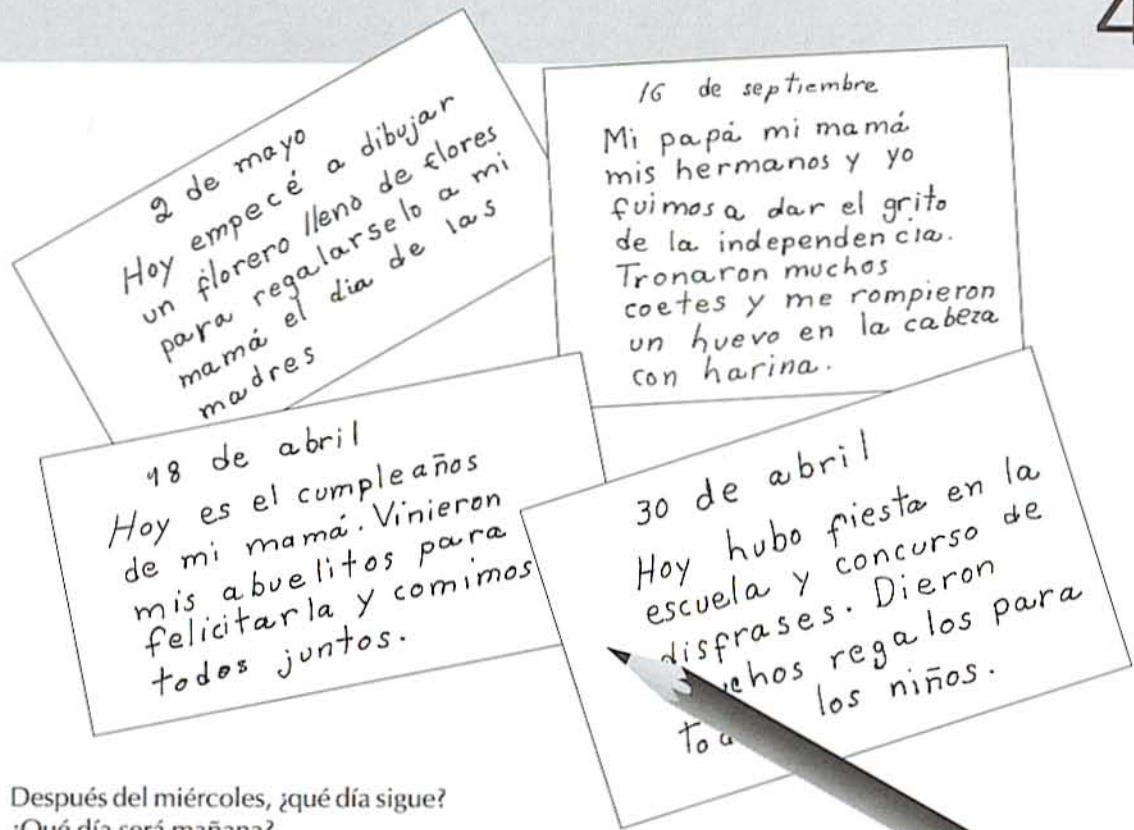 4
2 de mayo
Hoy empecé a dibujar
un florero lleno de flores
para regalarselo a mi
mamá el dia de las
madres
16 de septiembre
Mi papá mi mamá
mis hermanos y yo
fuimos a dar el grito
de la independencia.
Tronaron muchos
coetes y me rompieron
un huevo en la cabeza
con harina.
18 de abril
Hoy es el cumpleaños
de mi mamá. Vinieron
mis abuelitos para
felicitarla y comimos
todos juntos.
30 de abril
Hoy hubo fiesta en la
escuela y concurso de
disfrases. Dieron
regalos para
los niños.
Después del miércoles, ¿qué día sigue?
¿Qué día será mañana?